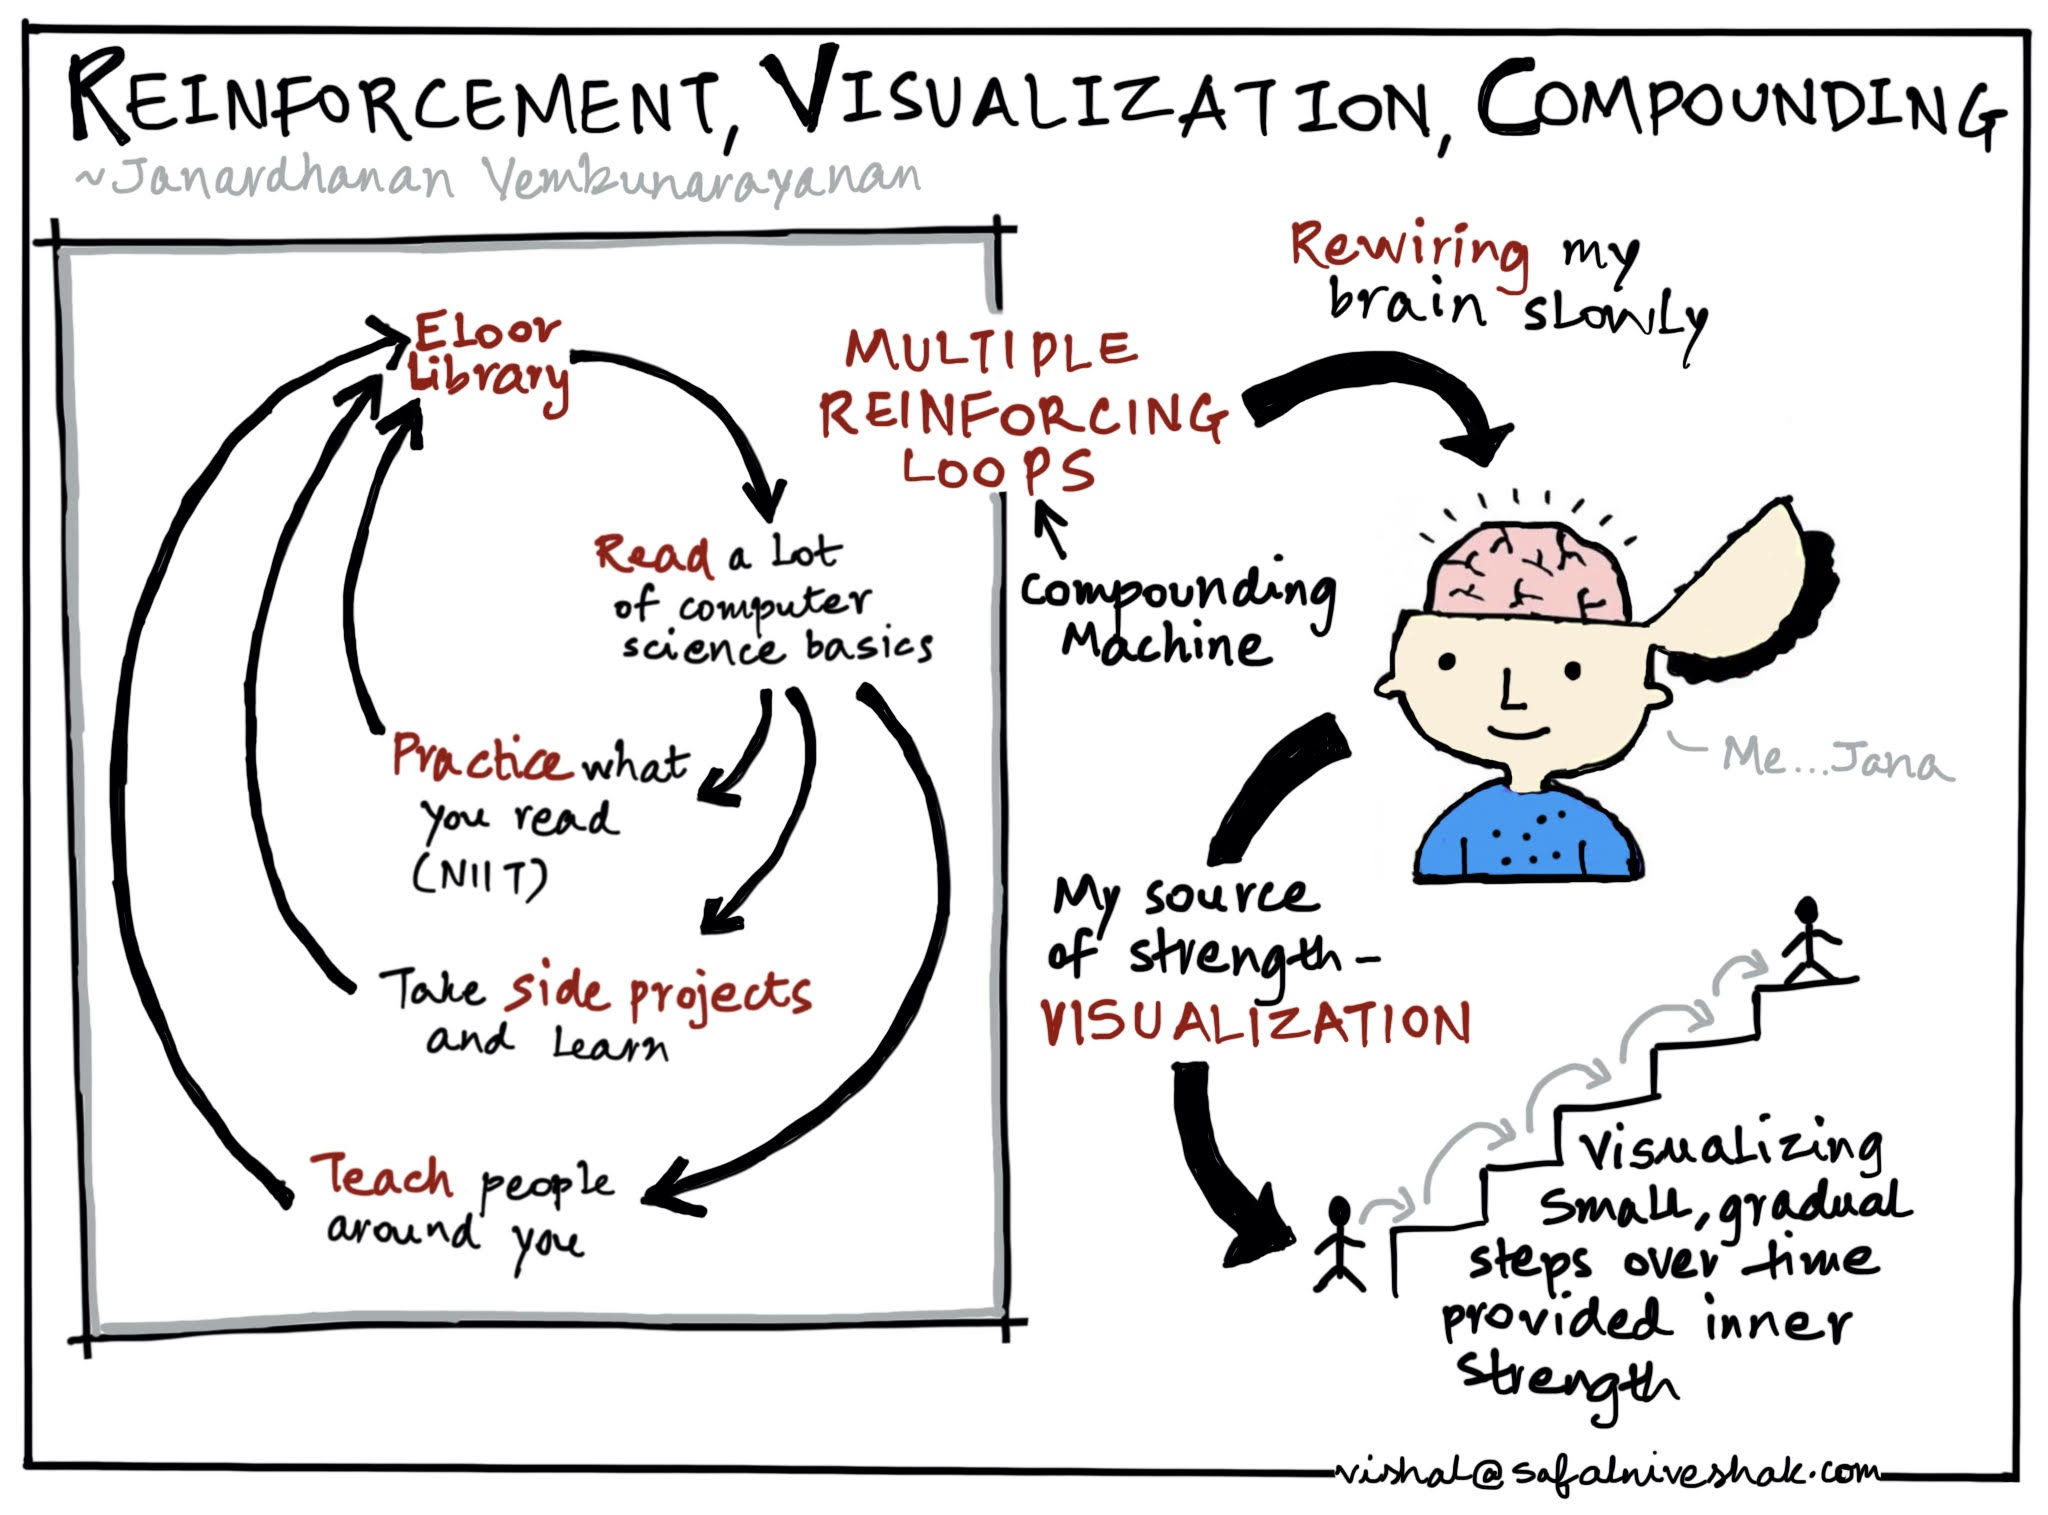 REINFORCEMENT, VISUALIZATION, COMPOUNDING
~Janardhanan Vembunarayanan
Eloor
Library
Read a lot
of computer
science basics
Practice what
you read
(NIIT)
Take side projects
and learn
Teach people
around you
MULTIPLE
REINFORCING
LOOPS
Compounding
Machine
Rewiring my
brain slowly
Me...Jana
My source
of strength-
VISUALIZATION
Visualizing
small, gradual
steps over time
provided inner
strength
vishal@safalniveshak.com